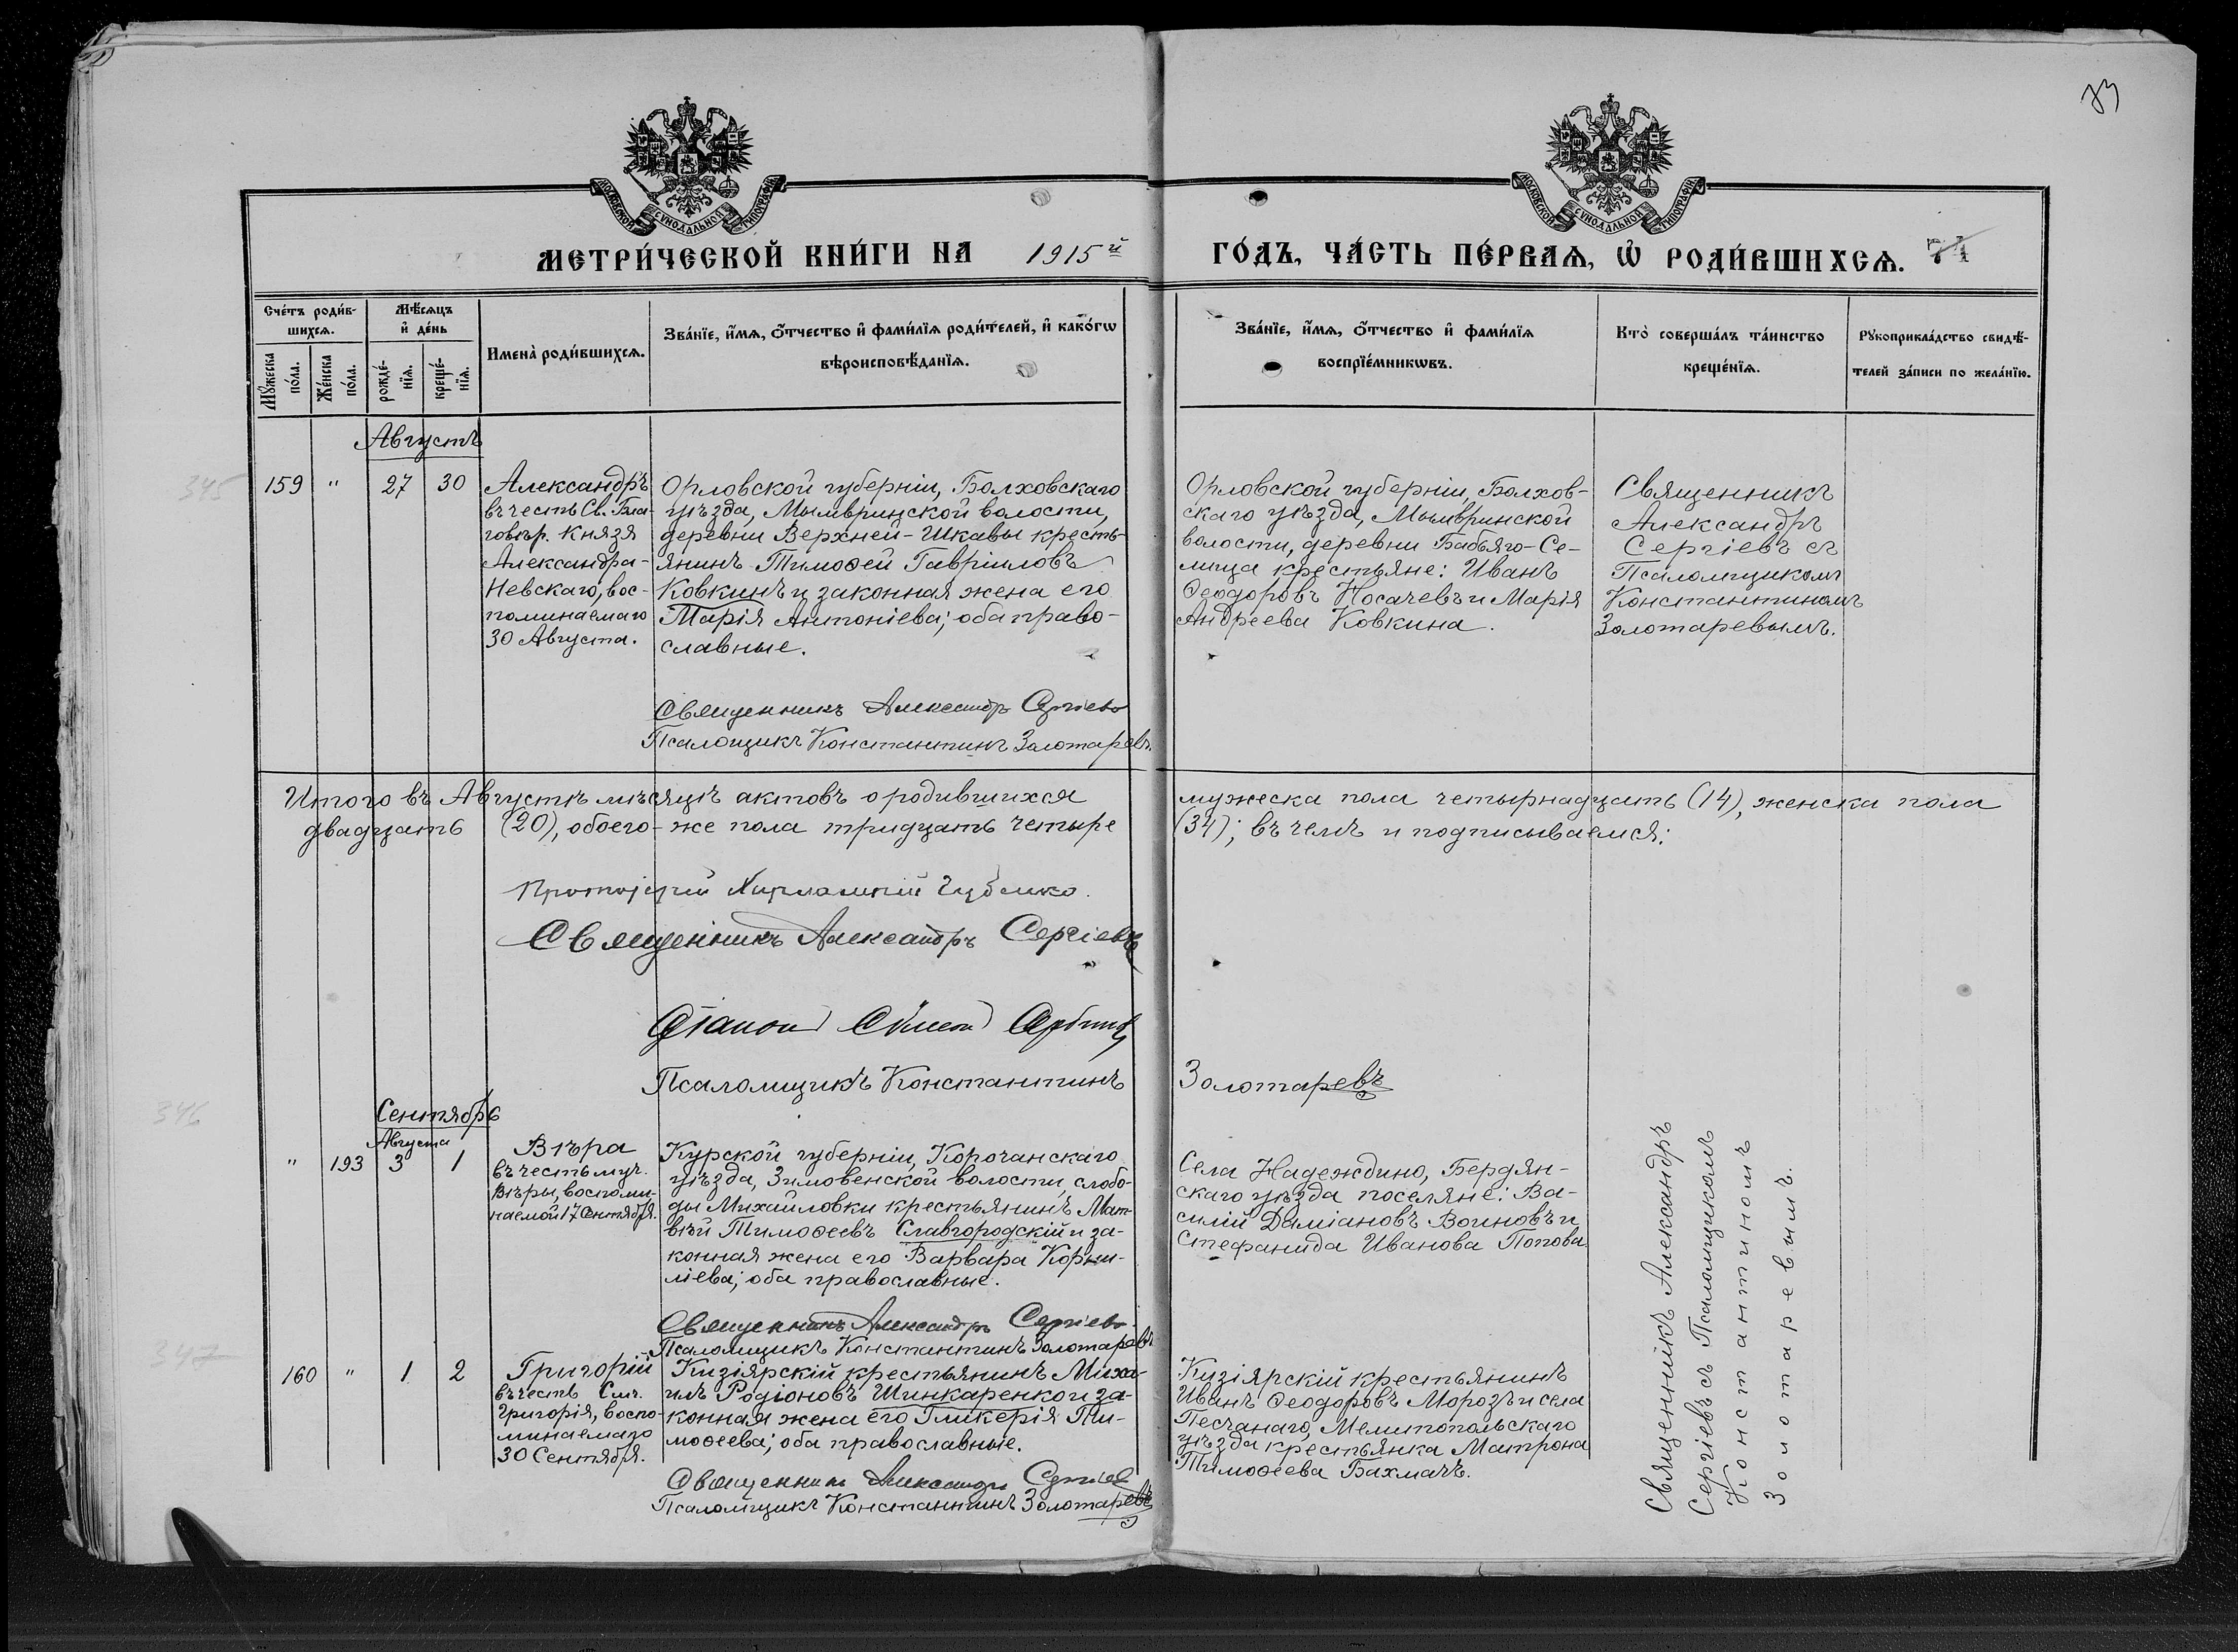 73
МОСКОВСКОЙ СѴНОДАЛЬНОЙ ТИПОГРАФІИ
МОСКОВСКОЙ СѴНОДАЛЬНОЙ ТИПОГРАФІИ
МЕТРИ́ЧЕСКОЙ КНИ́ГИ НА 1915й ГО́ДЪ, ЧА́СТЬ ПЕ́РВАѦ, Ѡ҆ РОДИ́ВШИХСѦ. 74
Сче́тъ роди́в-
шихсѧ.
Мꙋ́жеска
по́ла.
Же́нска
по́ла.
Мѣ́сѧцъ
и҆ де́нь
рожде́-
нїѧ.
креще́-
нїѧ.
Имена̀ роди́вшихсѧ.
Зва́нїе, и҆́мѧ, ѻ҆́тчество и҆ фами́лїѧ роди́телей, и҆ како́гѡ
вѣроисповѣ́данїѧ.
Зва́нїе, и҆́мѧ, ѻ҆́тчество и҆ фами́лїѧ
воспрїе́мникѡвъ.
Кто̀ соверша́лъ та́инство
креще́нїѧ.
Рꙋкоприкла́дство свидѣ́-
телей за́писи по жела́нїю.
Августъ
345
159 " 27 30
Александръ
въ честь Св. Бла-
говѣр. Князя
Александра-
Невскаго, вос-
поминаемаго
30 Августа.
Орловской губерніи, Болховскаго
уѣзда, Мымвринской волости,
деревни Верхней-Шкавы кресть-
янинъ Тимоѳей Гавріиловъ
Ковкинъ и законная жена его
Марія Антоніева; оба право-
славные.
Священникъ Александръ Сергіевъ
Псаломщикъ Константинъ Золотаревъ.
Орловской губерніи, Болхов-
скаго уѣзда, Мымвринской
волости, деревни Бабьяго-Се-
льца крестьяне: Иванъ
Ѳеодоровъ Носачевъ и Марія
Андреева Ковкина.
Священникъ
Александръ
Сергіевъ съ
Псаломщикомъ
Константиномъ
Золотаревымъ.
Итого въ Августѣ мѣсяцѣ актовъ о родившихся мужеска пола четырнадцать (14), женска пола
двадцать (20), обоего-же пола тридцать четыре (34); въ чемъ и подписываемся:
Протоіерей Харлампій
Священникъ Александръ Сергіевъ
Діаконъ
Псаломщикъ Константинъ Золотаревъ
346
Сентябрь
Августа
" 193 3 1
Вѣра
въ честь муч.
Вѣры, воспоми-
наемой 17 Сентября.
Курской губерніи, Корочанскаго
уѣзда, Зимовенской волости, слобо-
ды Михайловки крестьянинъ Мат-
вѣй Тимоѳеевъ Славгородскій и за-
конная жена его Варвара Корни-
ліева; оба православные.
Священникъ Александръ Сергіевъ
Псаломщикъ Константинъ Золотаревъ
Села Надеждино, Бердян-
скаго уѣзда поселяне: Ва-
силій Даміановъ Воиновъ и
Стефанида Иванова Попова.
347
160 " 1 2
Григорій
въ честь Смч.
Григорія, воспо-
минаемаго
30 Сентября.
Кизіярскій крестьянинъ Миха-
илъ Родіоновъ Шинкаренко и за-
конная жена его Гликерія Ти-
моѳеева; оба православные.
Священникъ Александръ Сергіев
Псаломщикъ Константинъ Золотаревъ
Кизіярскій крестьянинъ
Иванъ Ѳеодоровъ Морозъ и села
Песчанаго, Мелитопольскаго
уѣзда крестьянка Матрона
Тимоѳеева Бахмачъ.
Священникъ Александръ
Сергіевъ съ Псаломщикомъ
Константиномъ
Золотаревымъ.